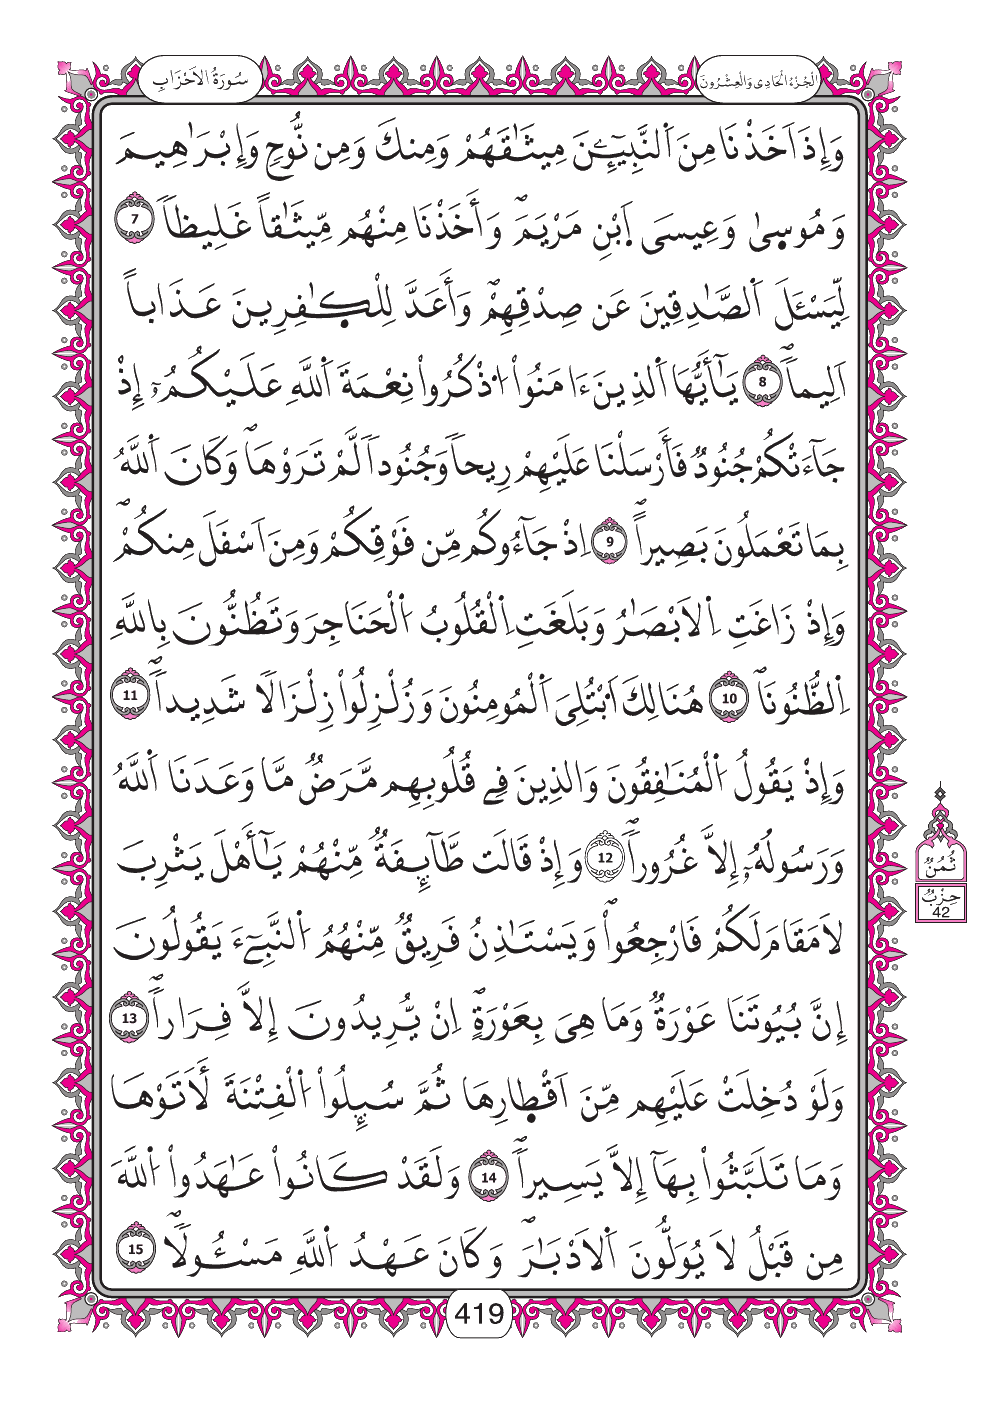 سُورَةُ الاَحْزَابِ
الْجُزْءُ الْحَادِي وَالْعِشْرُونَ
وَإِذَ اَخَذْنَا مِنَ اَ۬لنَّبِيٓـِٕۧنَ مِيثَٰقَهُمْ وَمِنكَ وَمِن نُّوحٖ وَإِبْرَٰهِيمَ
وَمُوس۪يٰ وَعِيسَي اَ۪بْنِ مَرْيَمَۖ وَأَخَذْنَا مِنْهُم مِّيثَٰقاً غَلِيظاٗ 7
لِّيَسْـَٔلَ اَ۬لصَّٰدِقِينَ عَن صِدْقِهِمْۖ وَأَعَدَّ لِلْكٰ۪فِرِينَ عَذَاباً
اَلِيماٗۖ 8 يَٰٓأَيُّهَا اَ۬لذِينَ ءَامَنُواْ اُ۟ذْكُرُواْ نِعْمَةَ اَ۬للَّهِ عَلَيْكُمُۥٓ إِذْ
جَآءَتْكُمْ جُنُودٞ فَأَرْسَلْنَا عَلَيْهِمْ رِيحاٗ وَجُنُوداٗ لَّمْ تَرَوْهَاۖ وَكَانَ اَ۬للَّهُ
بِمَا تَعْمَلُونَ بَصِيراًۖ 9 اِذْ جَآءُوكُم مِّن فَوْقِكُمْ وَمِنَ اَسْفَلَ مِنكُمْۖ
وَإِذْ زَاغَتِ اِ۬لَابْصَٰرُ وَبَلَغَتِ اِ۬لْقُلُوبُ اُ۬لْحَنَاجِرَ وَتَظُنُّونَ بِاللَّهِ
اِ۬لظُّنُونَاۖ 10 هُنَالِكَ اَ۟بْتُلِيَ اَ۬لْمُومِنُونَ وَزُلْزِلُواْ زِلْزَالاٗ شَدِيداٗۖ 11
وَإِذْ يَقُولُ اُ۬لْمُنَٰفِقُونَ وَالذِينَ فِے قُلُوبِهِم مَّرَضٞ مَّا وَعَدَنَا اَ۬للَّهُ
وَرَسُولُهُۥٓ إِلَّا غُرُوراٗۖ 12 وَإِذْ قَالَت طَّآئِفَةٞ مِّنْهُمْ يَٰٓأَهْلَ يَثْرِبَ
لَا مَقَامَ لَكُمْ فَارْجِعُواْۖ وَيَسْتَٰذِنُ فَرِيقٞ مِّنْهُمُ اُ۬لنَّبِےٓءَ يَقُولُونَ
إِنَّ بُيُوتَنَا عَوْرَةٞ وَمَا هِيَ بِعَوْرَةٍۖ اِنْ يُّرِيدُونَ إِلَّا فِرَاراٗۖ 13
وَلَوْ دُخِلَتْ عَلَيْهِم مِّنَ اَقْطٰ۪ارِهَا ثُمَّ سُئِلُواْ اُ۬لْفِتْنَةَ لَأَتَوْهَا
وَمَا تَلَبَّثُواْ بِهَآ إِلَّا يَسِيراٗۖ 14 وَلَقَدْ كَانُواْ عَٰهَدُواْ اُ۬للَّهَ
مِن قَبْلُ لَا يُوَلُّونَ اَ۬لَادْبَٰرَۖ وَكَانَ عَهْدُ اُ۬للَّهِ مَسْـُٔولاٗۖ 15
ثُمُنُ
حِزْبُ
42
419